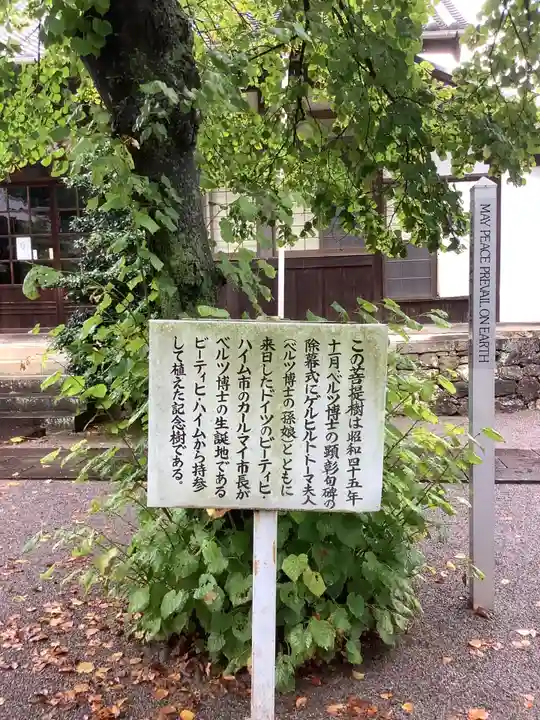 この菩提樹は昭和四十五年
十一月、ベルツ博士の顕彰句碑の
除幕式にゲルヒルト・トーマ夫人
(ベルツ博士の孫娘)とともに
来日したドイツのビーティヒ・
ハイム市のカールマイ市長が
ベルツ博士の生誕地である
ビーティヒ・ハイムから持参
して植えた記念樹である。
MAY PEACE PREVAIL ON EARTH